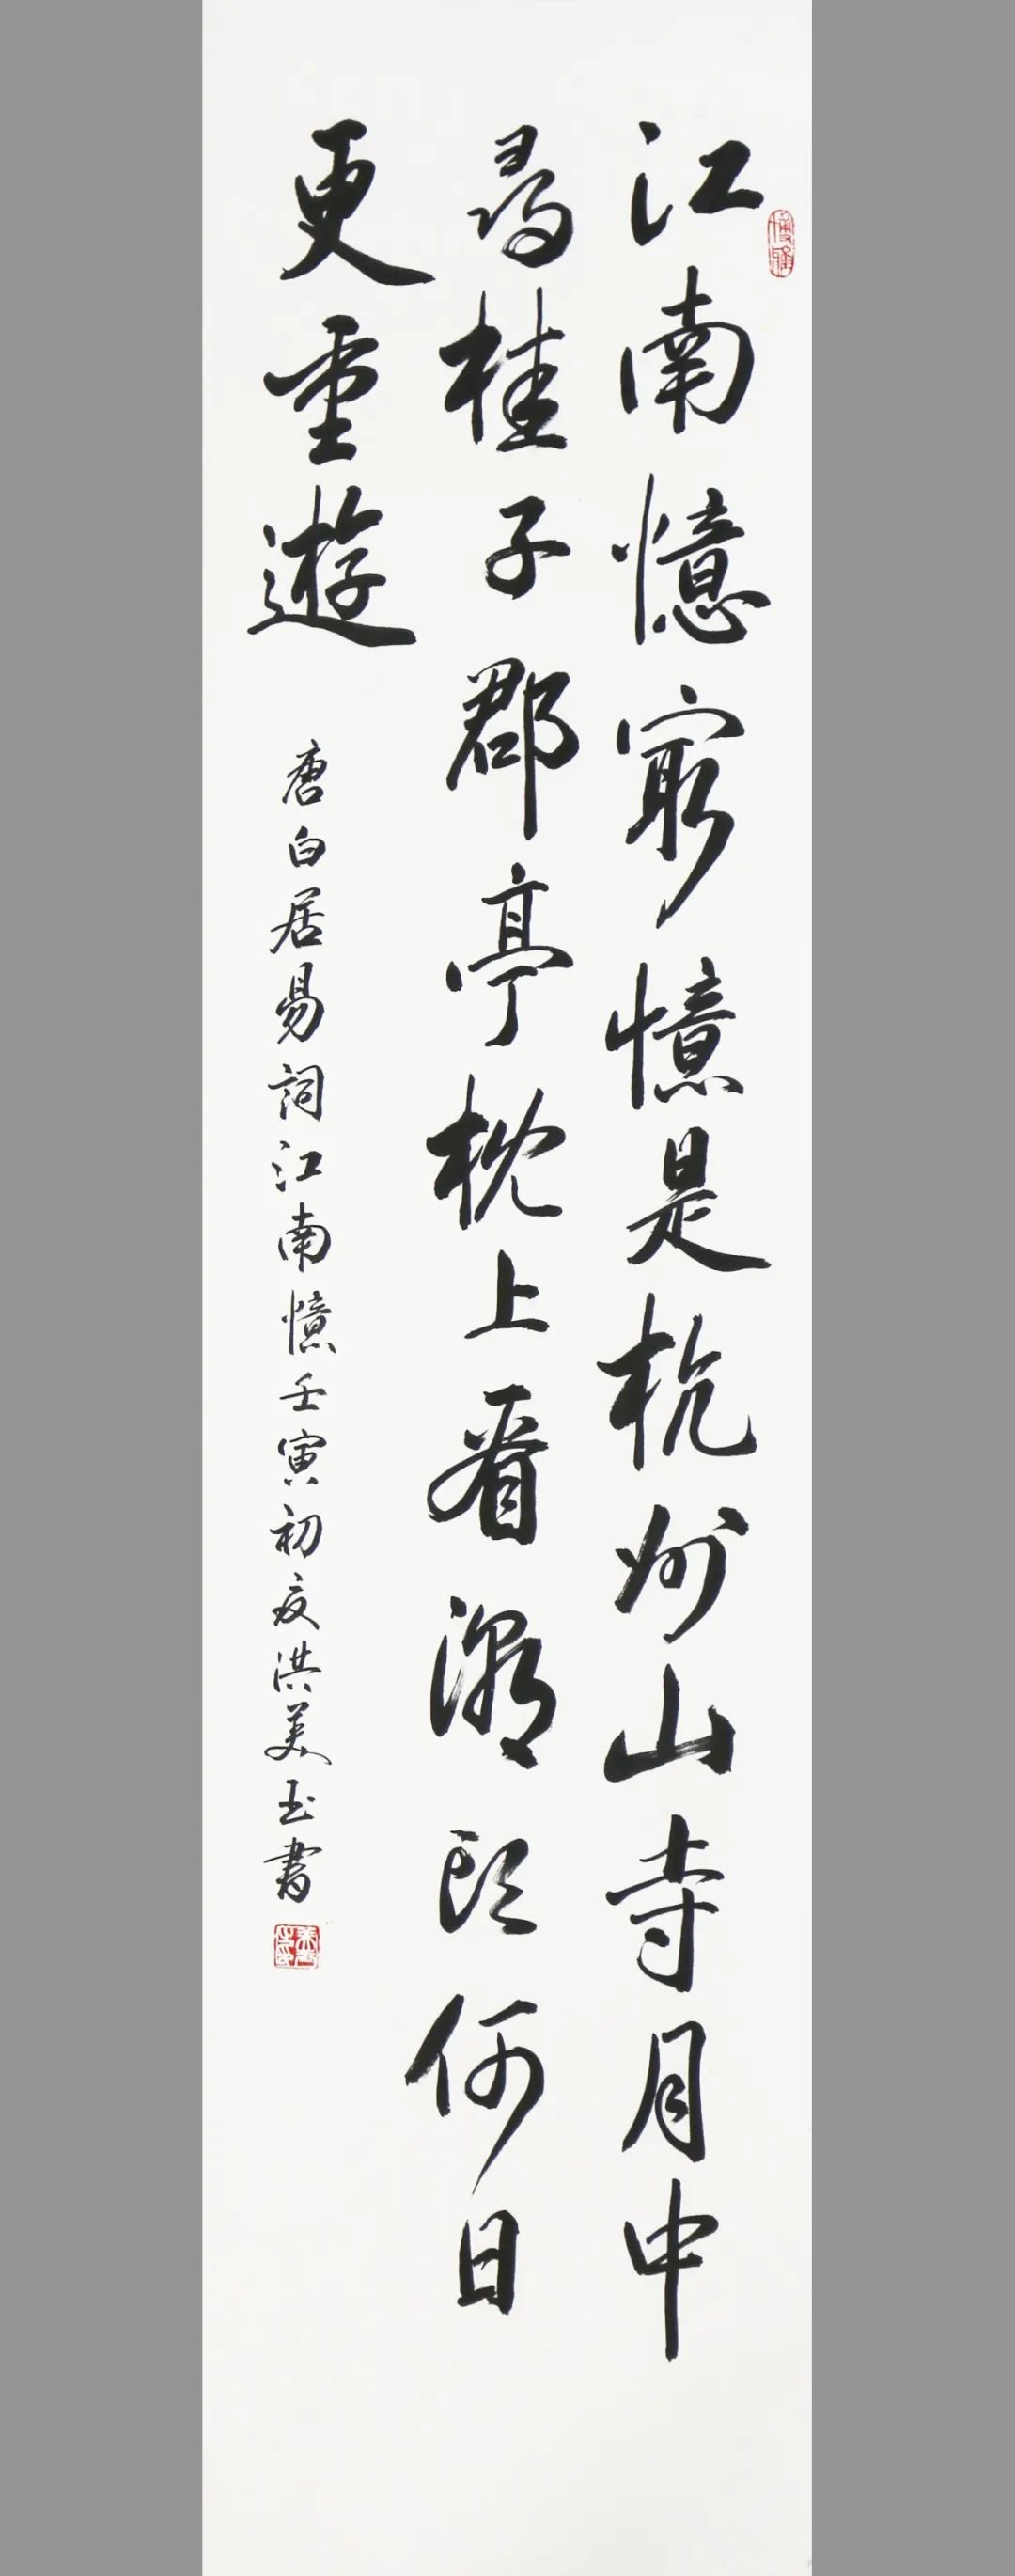 博雅
江南憶最憶是杭州山寺月中
尋桂子郡亭枕上看潮頭何日
更重遊
唐白居易詞江南憶壬寅初夏洪美玉書